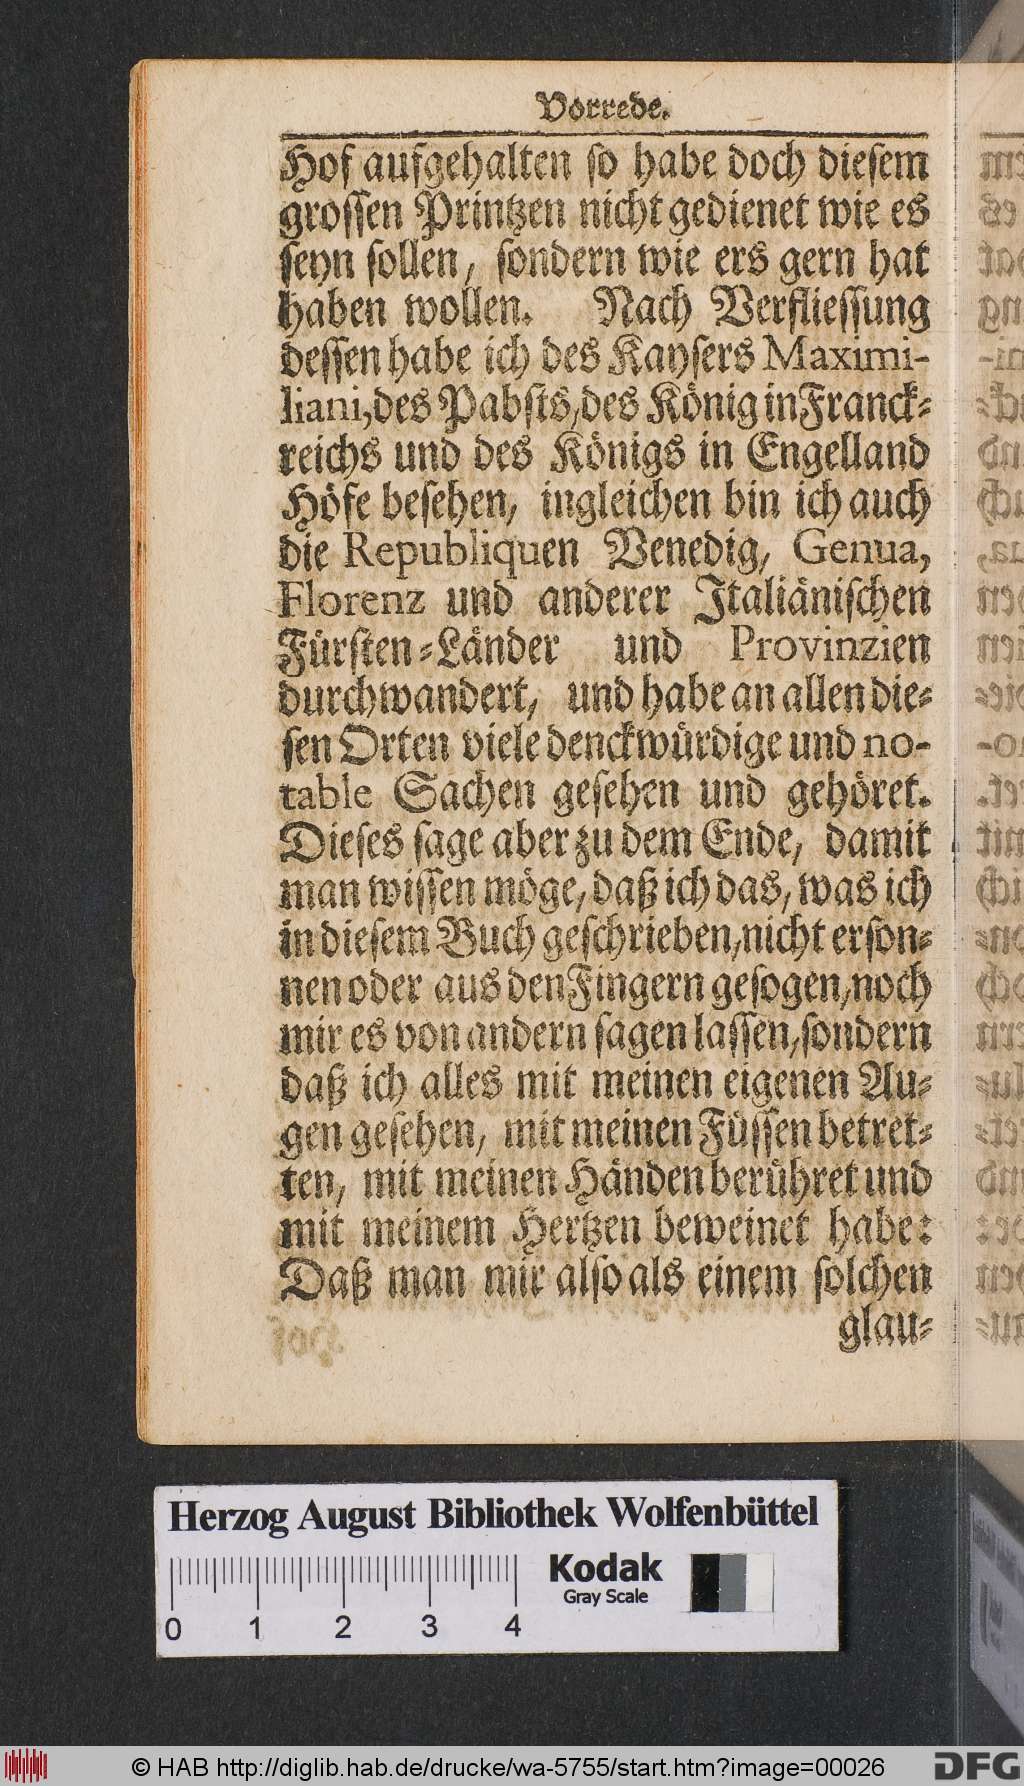 Vorrede.
Hof aufgehalten so habe doch diesem
grossen Printzen nicht gedienet wie es
seyn sollen, sondern wie ers gern hat
haben wollen. Nach Verfliessung
dessen habe ich des Kaysers Maximi-
liani, des Pabsts, des König in Franck-
reichs und des Königs in Engelland
Höfe besehen, ingleichen bin ich auch
die Republiquen Venedig, Genua,
Florenz und anderer Italiänischen
Fürsten-Länder und Provinzien
durchwandert, und habe an allen die-
sen Orten viele denckwürdige und no-
table Sachen gesehen und gehöret.
Dieses sage aber zu dem Ende, damit
man wissen möge, daß ich das, was ich
in diesem Buch geschrieben, nicht erson-
nen oder aus den Fingern gesogen, noch
mir es von andern sagen lassen, sondern
daß ich alles mit meinen eigenen Au-
gen gesehen, mit meinen Füssen betret-
ten, mit meinen Händen berühret und
mit meinem Hertzen beweinet habe:
Daß man mir also als einem solchen
glau-
Herzog August Bibliothek Wolfenbüttel
Kodak
Gray Scale
0 1 2 3 4
© HAB http://diglib.hab.de/drucke/wa-5755/start.htm?image=00026
DFG